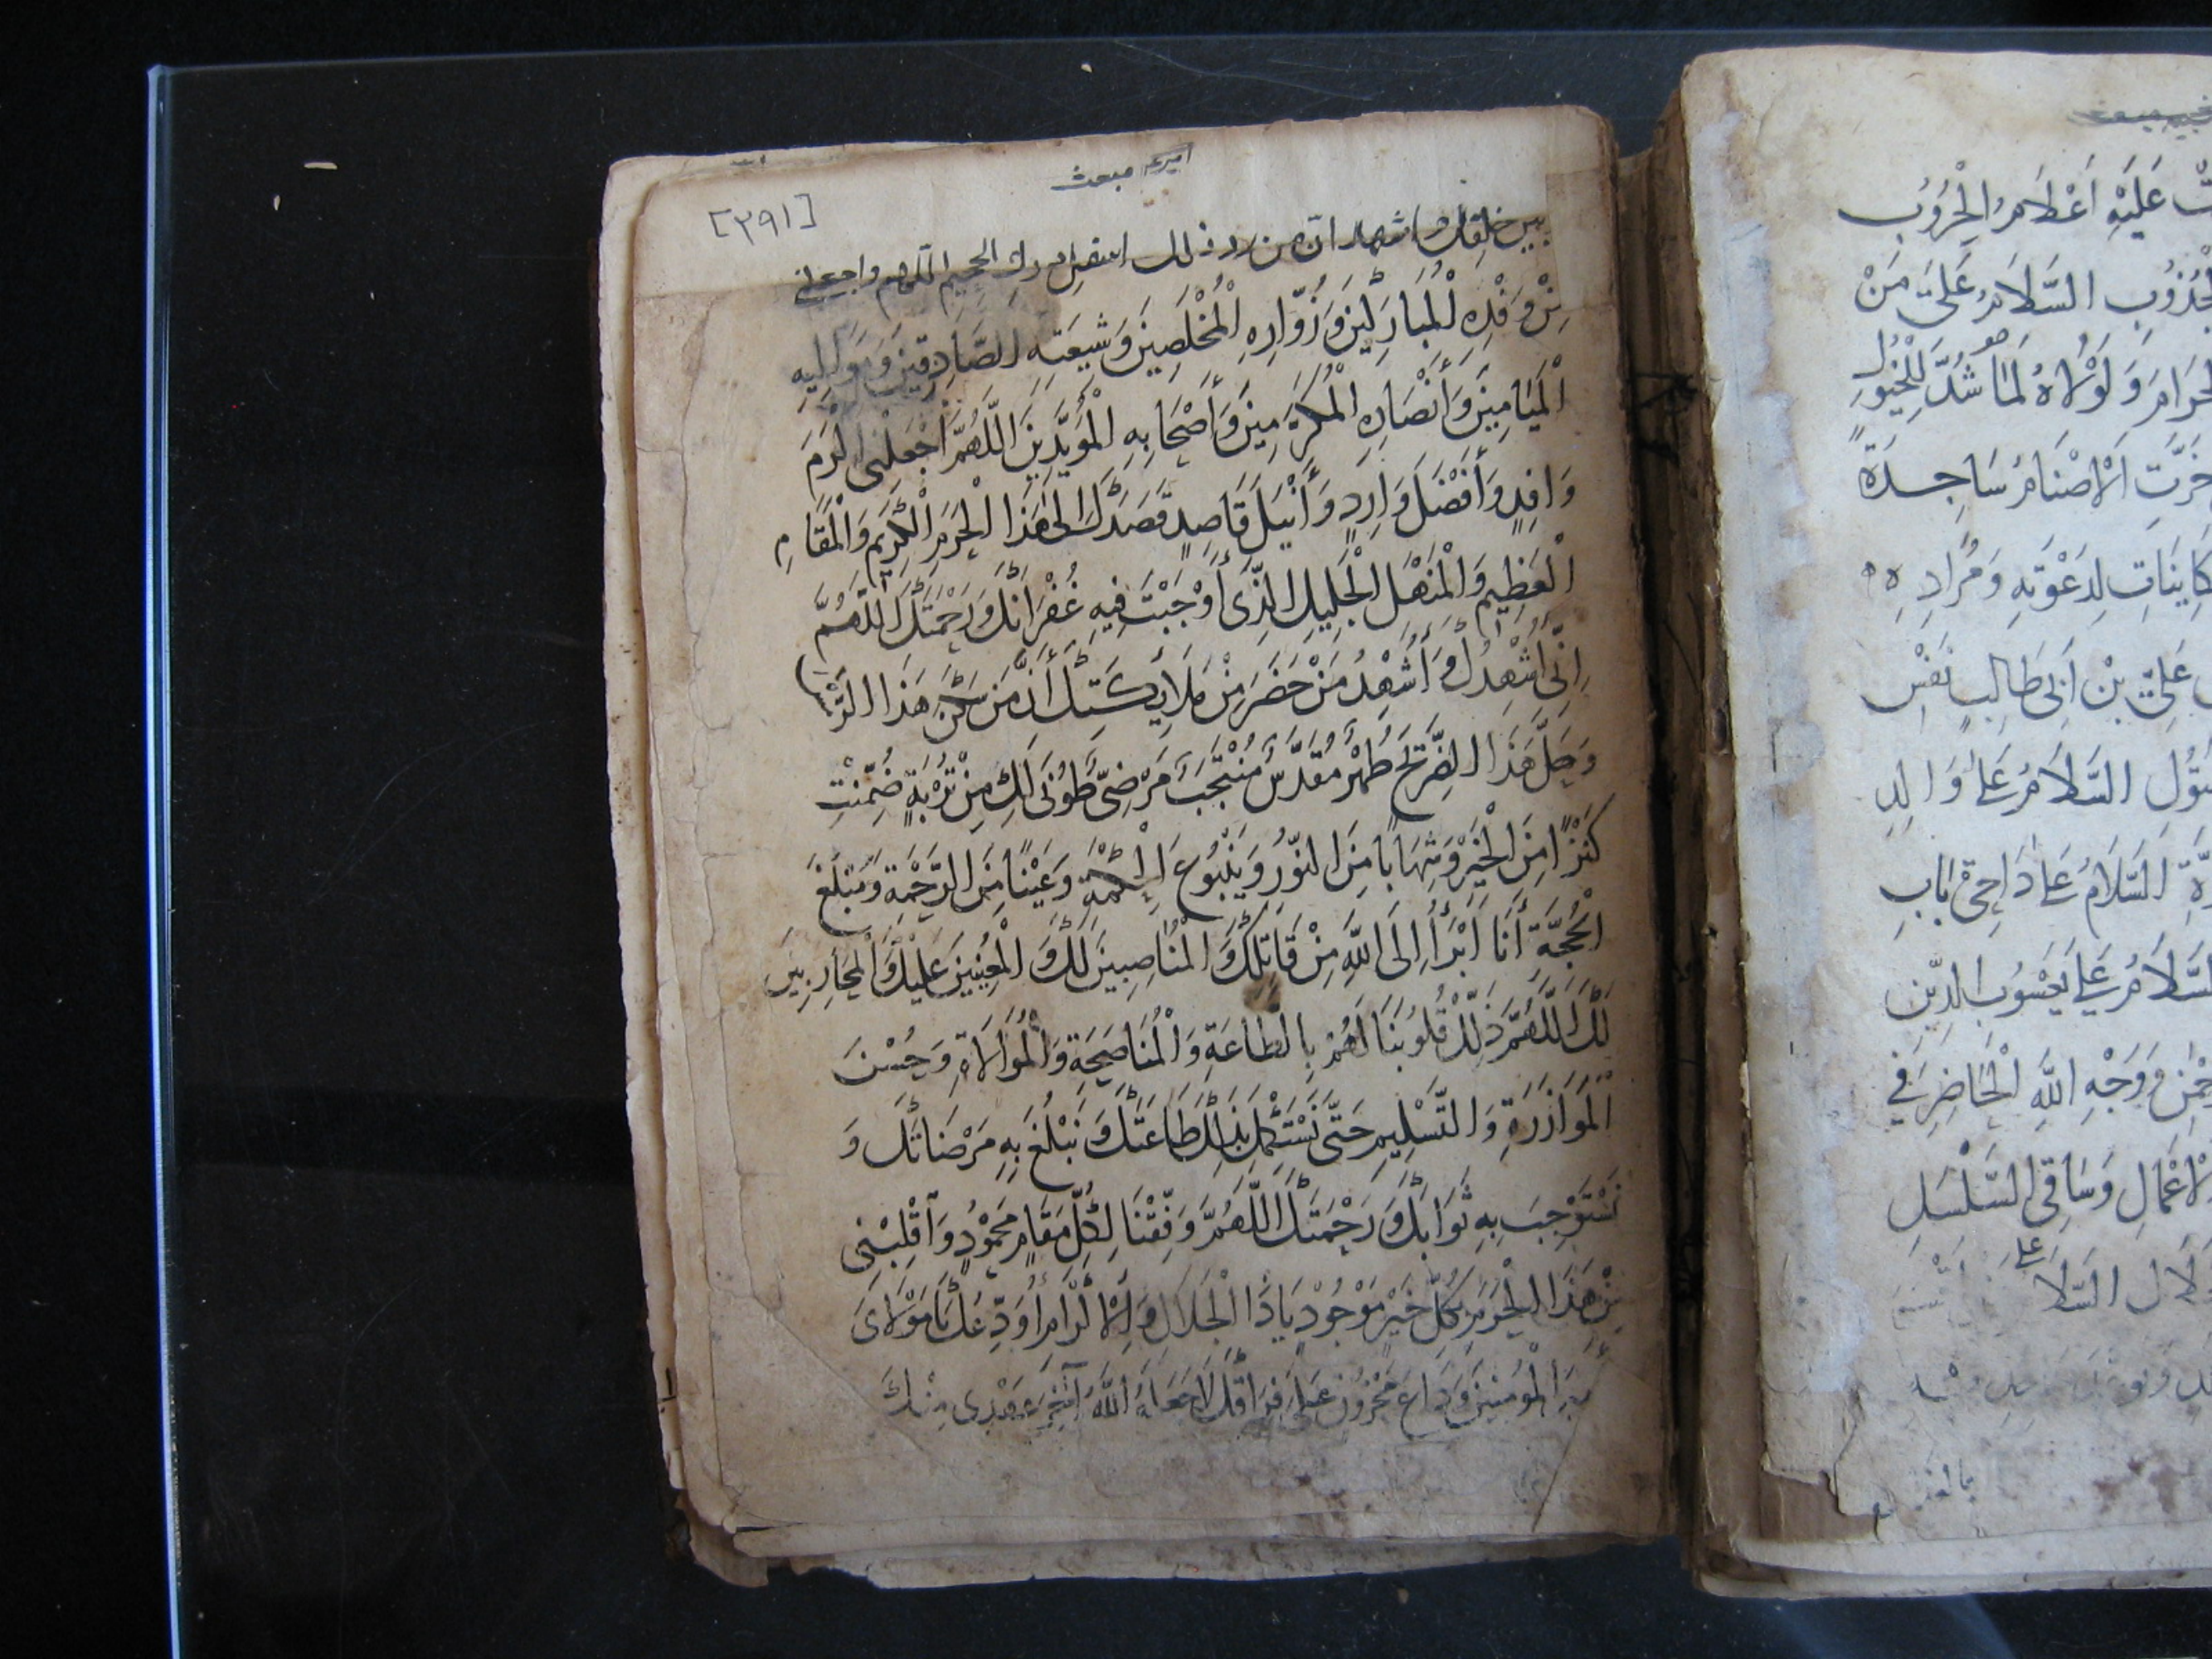 اميرع مبعث
[٣٩١]
بين خلقك واشهد ان من رد ذلك اسفل درك الجحيم اللهم واجعلني
مِنْ وَفْدِهِ الْمُبَارَكِينَ وَزُوَّارِهِ الْمُخْلَصِينَ وَشِيعَتِهِ الصَّادِقِينَ وَمَوَالِيهِ
الْمَيَامِينَ وَأَنْصَارِهِ الْمُكَرَّمِينَ وَأَصْحَابِهِ الْمُؤَيَّدِينَ اللَّهُمَّ اجْعَلْنِي أَكْرَمَ
وَافِدٍ وَأَفْضَلَ وَارِدٍ وَأَنْبَلَ قَاصِدٍ قَصَدَكَ إِلَى هَذَا الْحَرَمِ الْكَرِيمِ وَالْمَقَامِ
الْعَظِيمِ وَالْمَنْهَلِ الْجَلِيلِ الَّذِي أَوْجَبْتَ فِيهِ غُفْرَانَكَ وَرَحْمَتَكَ اللَّهُمَّ
إِنِّي أُشْهِدُكَ وَأُشْهِدُ مَنْ حَضَرَ مِنْ مَلَائِكَتِكَ أَنَّ مَنْ سَكَنَ هَذَا الرَّمْسَ
وَحَلَّ هَذَا الضَّرِيحَ طُهْرٌ مُقَدَّسٌ مُنْتَجَبٌ مَرْضِيٌّ طُوبَى لَكِ مِنْ تُرْبَةٍ ضُمِّنَتْ
كَنْزًا مِنَ الْخَيْرِ وَشِهَابًا مِنَ النُّورِ وَيَنْبُوعَ الْحِكْمَةِ وَعَيْنًا مِنَ الرَّحْمَةِ وَمَبْلَغَ
الْحُجَّةِ أَنَا أَبْرَأُ إِلَى اللَّهِ مِنْ قَاتِلِكَ وَالْمُنَاصِبِينَ لَكَ وَالْمُعِينِينَ عَلَيْكَ وَالْمُحَارِبِينَ
لَكَ اللَّهُمَّ ذَلِّلْ قُلُوبَنَا لَهُمْ بِالطَّاعَةِ وَالْمُنَاصَحَةِ وَالْمُوَالَاةِ وَحُسْنِ
الْمُوَازَرَةِ وَالتَّسْلِيمِ حَتَّى نَسْتَكْمِلَ بِذَلِكَ طَاعَتَكَ وَنَبْلُغَ بِهِ مَرْضَاتَكَ وَ
نَسْتَوْجِبَ بِهِ ثَوَابَكَ وَرَحْمَتَكَ اللَّهُمَّ وَفِّقْنَا لِكُلِّ مَقَامٍ مَحْمُودٍ وَأَقْلِبْنِي
مِنْ هَذَا الْحَرَمِ بِكُلِّ خَيْرٍ مَوْجُودٍ يَا ذَا الْجَلَالِ وَالْإِكْرَامِ أُوَدِّعُكَ يَا مَوْلَايَ
الْمُؤْمِنِينَ وَدَاعَ مَحْزُونٍ عَلَى فِرَاقِكَ لَا جَعَلَهُ اللَّهُ آخِرَ عَهْدِي مِنْكَ
عَلَيْهِ أَعْظَامُ الْحُرُوبِ
السَّلَامُ عَلَى مَنْ
وَلَوْلَاهُ لَمَا شُدَّ
خَرَّتِ الْأَصْنَامُ سَاجِدَةً
لِدَعْوَتِهِ وَمُرَادِهِ
عَلِيِّ بْنِ أَبِي طَالِبٍ نَفْسِ
السَّلَامُ عَلَى وَالِدِ
السَّلَامُ عَلَى دَاحِي بَابِ
السَّلَامُ عَلَى يَعْسُوبِ الدِّينِ
وَوَجْهِ اللَّهِ الْحَاضِرِ فِي
وَسَاقِي السَّلْسَلِ
السَّلَا